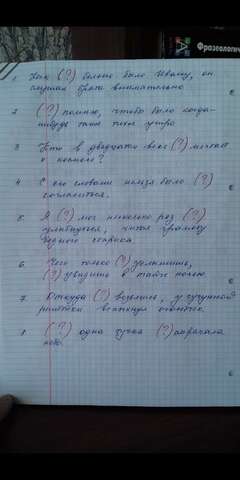 Фразеологи
1 Как (?) больно было Ивану, он
слушал брата внимательно
2 (?) помню, чтобы было когда-
нибудь такое тихое утро
3 Кто в двадцатом веке (?) мечтал
о космосе?
4 С его словами нельзя было (?)
согласиться.
5 Я (?) мог несколько раз (?)
улыбнуться, читая грамоту
бедного старика
6 Чего только (?) услышишь,
(?) увидишь в тайге ночью
7 Откуда (?) возьмись, у чугунной
решетки вспыхнул огонёчек.
8 (?) одна тучка (?) омрачала
небо.